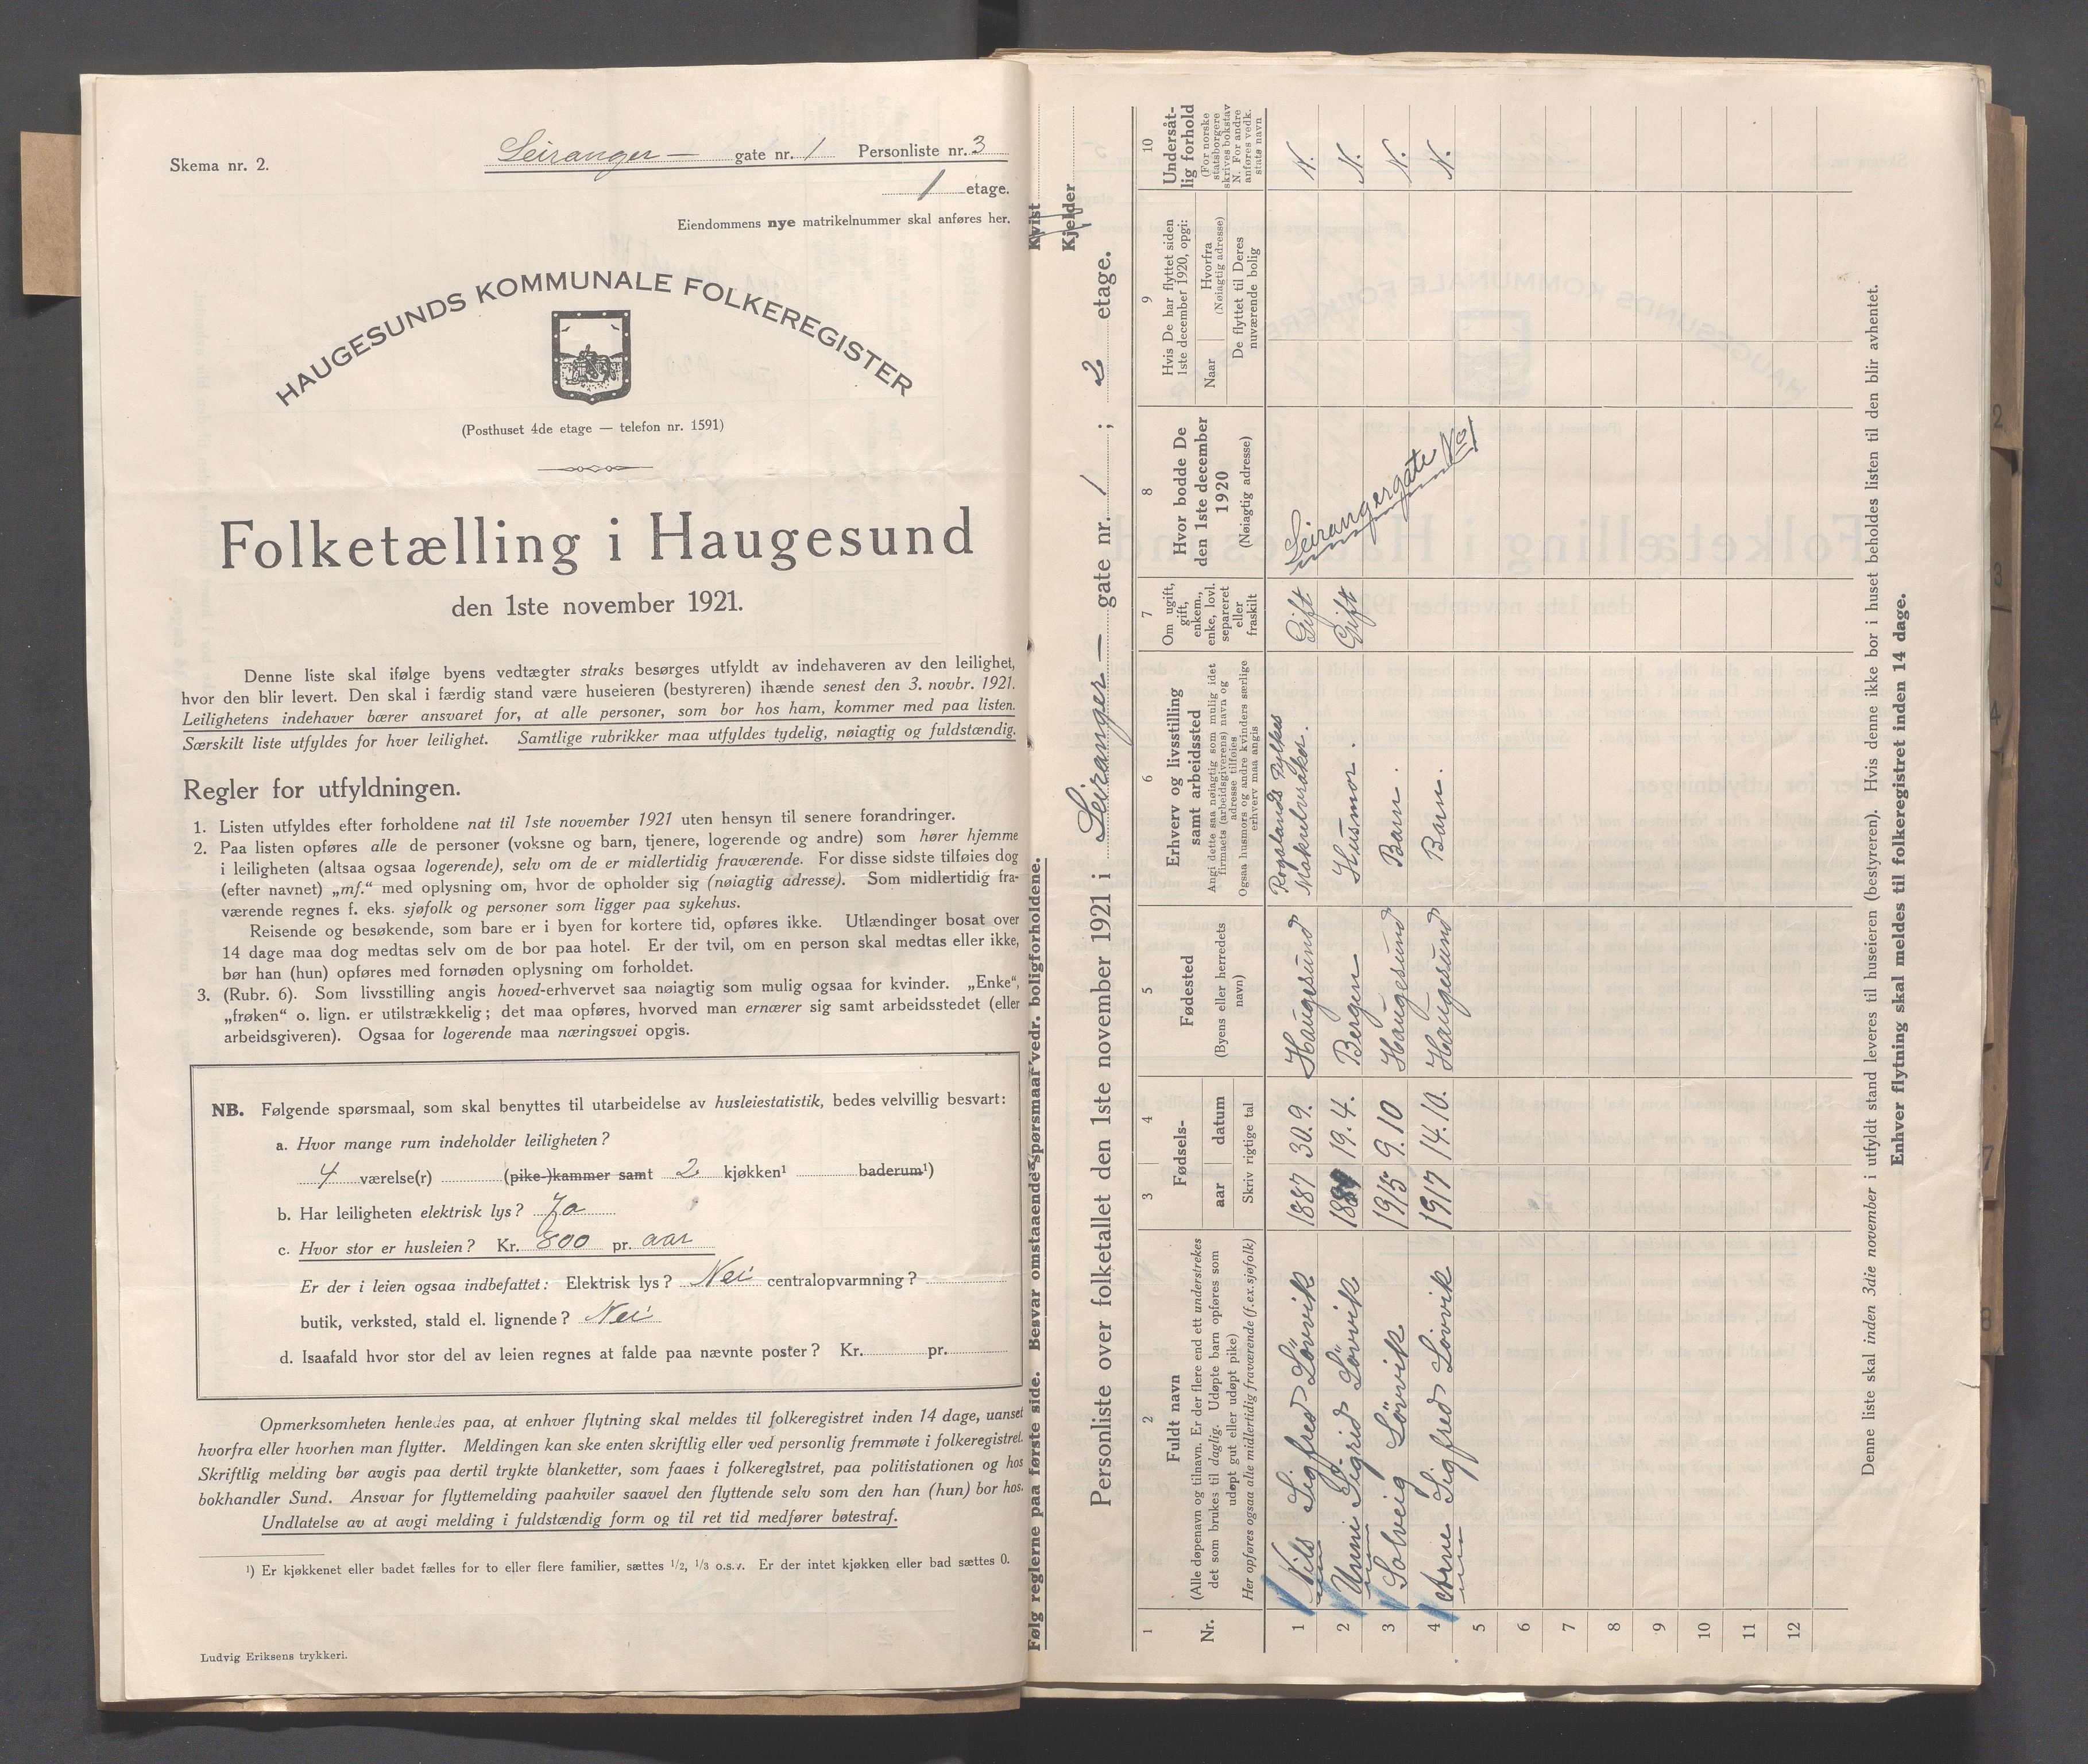 Skema nr. 2.
Seiranger — gate nr. 1 Personliste nr. 3
1 etage.
Eiendommens nye matrikelnummer skal anføres her.
HAUGESUNDS KOMMUNALE FOLKEREGISTER
(Posthuset 4de etage — telefon nr. 1591)
Folketælling i Haugesund
den 1ste november 1921.
Denne liste skal ifølge byens vedtægter straks besørges utfyldt av indehaveren av den leilighet,
hvor den blir levert. Den skal i færdig stand være huseieren (bestyreren) ihænde senest den 3. novbr. 1921.
Leilighetens indehaver bærer ansvaret for, at alle personer, som bor hos ham, kommer med paa listen.
Særskilt liste utfyldes for hver leilighet. Samtlige rubrikker maa utfyldes tydelig, nøiagtig og fuldstændig.
Regler for utfyldningen.
1. Listen utfyldes efter forholdene nat til 1ste november 1921 uten hensyn til senere forandringer.
2. Paa listen opføres alle de personer (voksne og barn, tjenere, logerende og andre) som hører hjemme
i leiligheten (altsaa ogsaa logerende), selv om de er midlertidig fraværende. For disse sidste tilføies dog
(efter navnet) „mf.“ med oplysning om, hvor de opholder sig (nøiagtig adresse). Som midlertidig fra-
værende regnes f. eks. sjøfolk og personer som ligger paa sykehus.
Reisende og besøkende, som bare er i byen for kortere tid, opføres ikke. Utlændinger bosat over
14 dage maa dog medtas selv om de bor paa hotel. Er der tvil, om en person skal medtas eller ikke,
bør han (hun) opføres med fornøden oplysning om forholdet.
3. (Rubr. 6). Som livsstilling angis hoved-erhvervet saa nøiagtig som mulig ogsaa for kvinder. „Enke“,
„frøken“ o. lign. er utilstrækkelig; det maa opføres, hvorved man ernærer sig samt arbeidsstedet (eller
arbeidsgiveren). Ogsaa for logerende maa næringsvei opgis.
NB. Følgende spørsmaal, som skal benyttes til utarbeidelse av husleiestatistik, bedes velvillig besvart:
a. Hvor mange rum indeholder leiligheten?
4 værelse(r) (pike-)kammer samt 2 kjøkken¹ baderum¹)
b. Har leiligheten elektrisk lys? Ja
c. Hvor stor er husleien? Kr. 800 pr. aar
Er der i leien ogsaa indbefattet: Elektrisk lys? Nei centralopvarmning?
butik, verksted, stald el. lignende? Nei
d. Isaafald hvor stor del av leien regnes at falde paa nævnte poster? Kr. pr.
Opmerksomheten henledes paa, at enhver flytning skal meldes til folkeregistret inden 14 dage, uanset
hvorfra eller hvorhen man flytter. Meldingen kan ske enten skriftlig eller ved personlig fremmøte i folkeregistret.
Skriftlig melding bør avgis paa dertil trykte blanketter, som faaes i folkeregistret, paa politistationen og hos
bokhandler Sund. Ansvar for flyttemelding paahviler saavel den flyttende selv som den han (hun) bor hos.
Undlatelse av at avgi melding i fuldstændig form og til ret tid medfører bøtestraf.
¹) Er kjøkkenet eller badet fælles for to eller flere familier, sættes 1/2, 1/3 o.s.v. Er der intet kjøkken eller bad sættes 0.
Ludvig Eriksens trykkeri.
Følg reglerne paa første side. Besvar omstaaende spørsmaar vedr. boligforholdene.
Kvist
Kjelder
Personliste over folketallet den 1ste november 1921 i Seiranger — gate nr. 1 ; 2 etage.
1 2 3 4 5 6 7 8 9 10
Nr.
Fuldt navn
(Alle døpenavn og tilnavn. Er der flere end ett understrekes
det som brukes til daglig. Udøpte barn opføres som
udøpt gut eller udøpt pike)
Her opføres ogsaa alle midlertidig fraværende (f.ex.sjøfolk)
Fødsels-
aar datum
Skriv rigtige tal
Fødested
(Byens eller herredets
navn)
Erhverv og livsstilling
samt arbeidssted
Angi dette saa nøiagtig som mulig idet
firmaets (arbeidsgiverens) navn og
adresse tilføies
Ogsaa husmors og andre kvinders særlige
erhverv maa angis
Om ugift,
gift,
enkem.,
enke, lovl.
separeret
eller
fraskilt
Hvor bodde De
den 1ste december
1920
(Nøiagtig adresse)
Hvis De har flyttet siden
1ste december 1920, opgi:
Naar
Hvorfra
(Nøiagtig adresse)
De flyttet til Deres
nuværende bolig
Undersåt-
lig forhold
(For norske
statsborgere
skrives bokstav
N. For andre
anføres vedk.
stats navn
1 Nils Sigfred Lövvik 1887 30.9. Haugesund Rogalands Fylkes Makrelvraker. Gift Seirangergate No 1 N.
2 Unni Sigrid Lövvik 19.4. Bergen Husmor. Gift N.
3 Solveig Lövvik 1915 9.10 Haugesund Barn. N.
4 Arne Sigfred Lövvik 1917 14.10. Haugesund Barn. N.
5
6
7
8
9
10
11
12
Denne liste skal inden 3die november i utfyldt stand leveres til huseieren (bestyreren). Hvis denne ikke bor i huset beholdes listen til den blir avhentet.
Enhver flytning skal meldes til folkeregistret inden 14 dage.
2
3
4
7
8